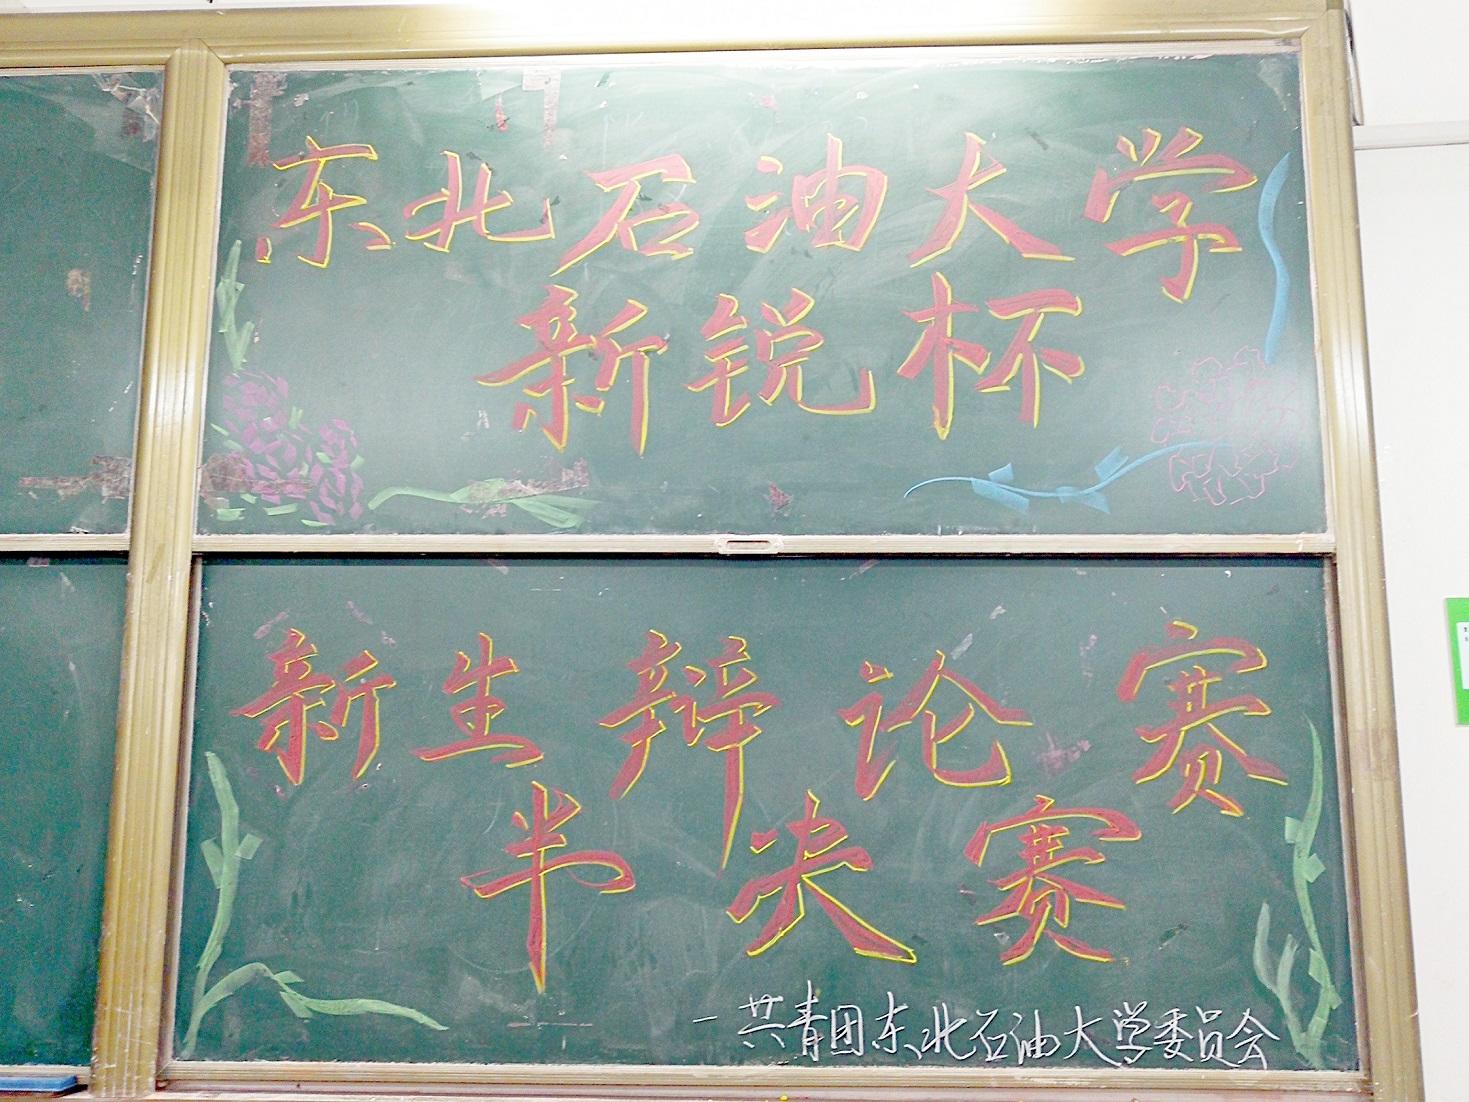 东北石油大学
新锐杯
新生辩论赛
半决赛
—共青团东北石油大学委员会